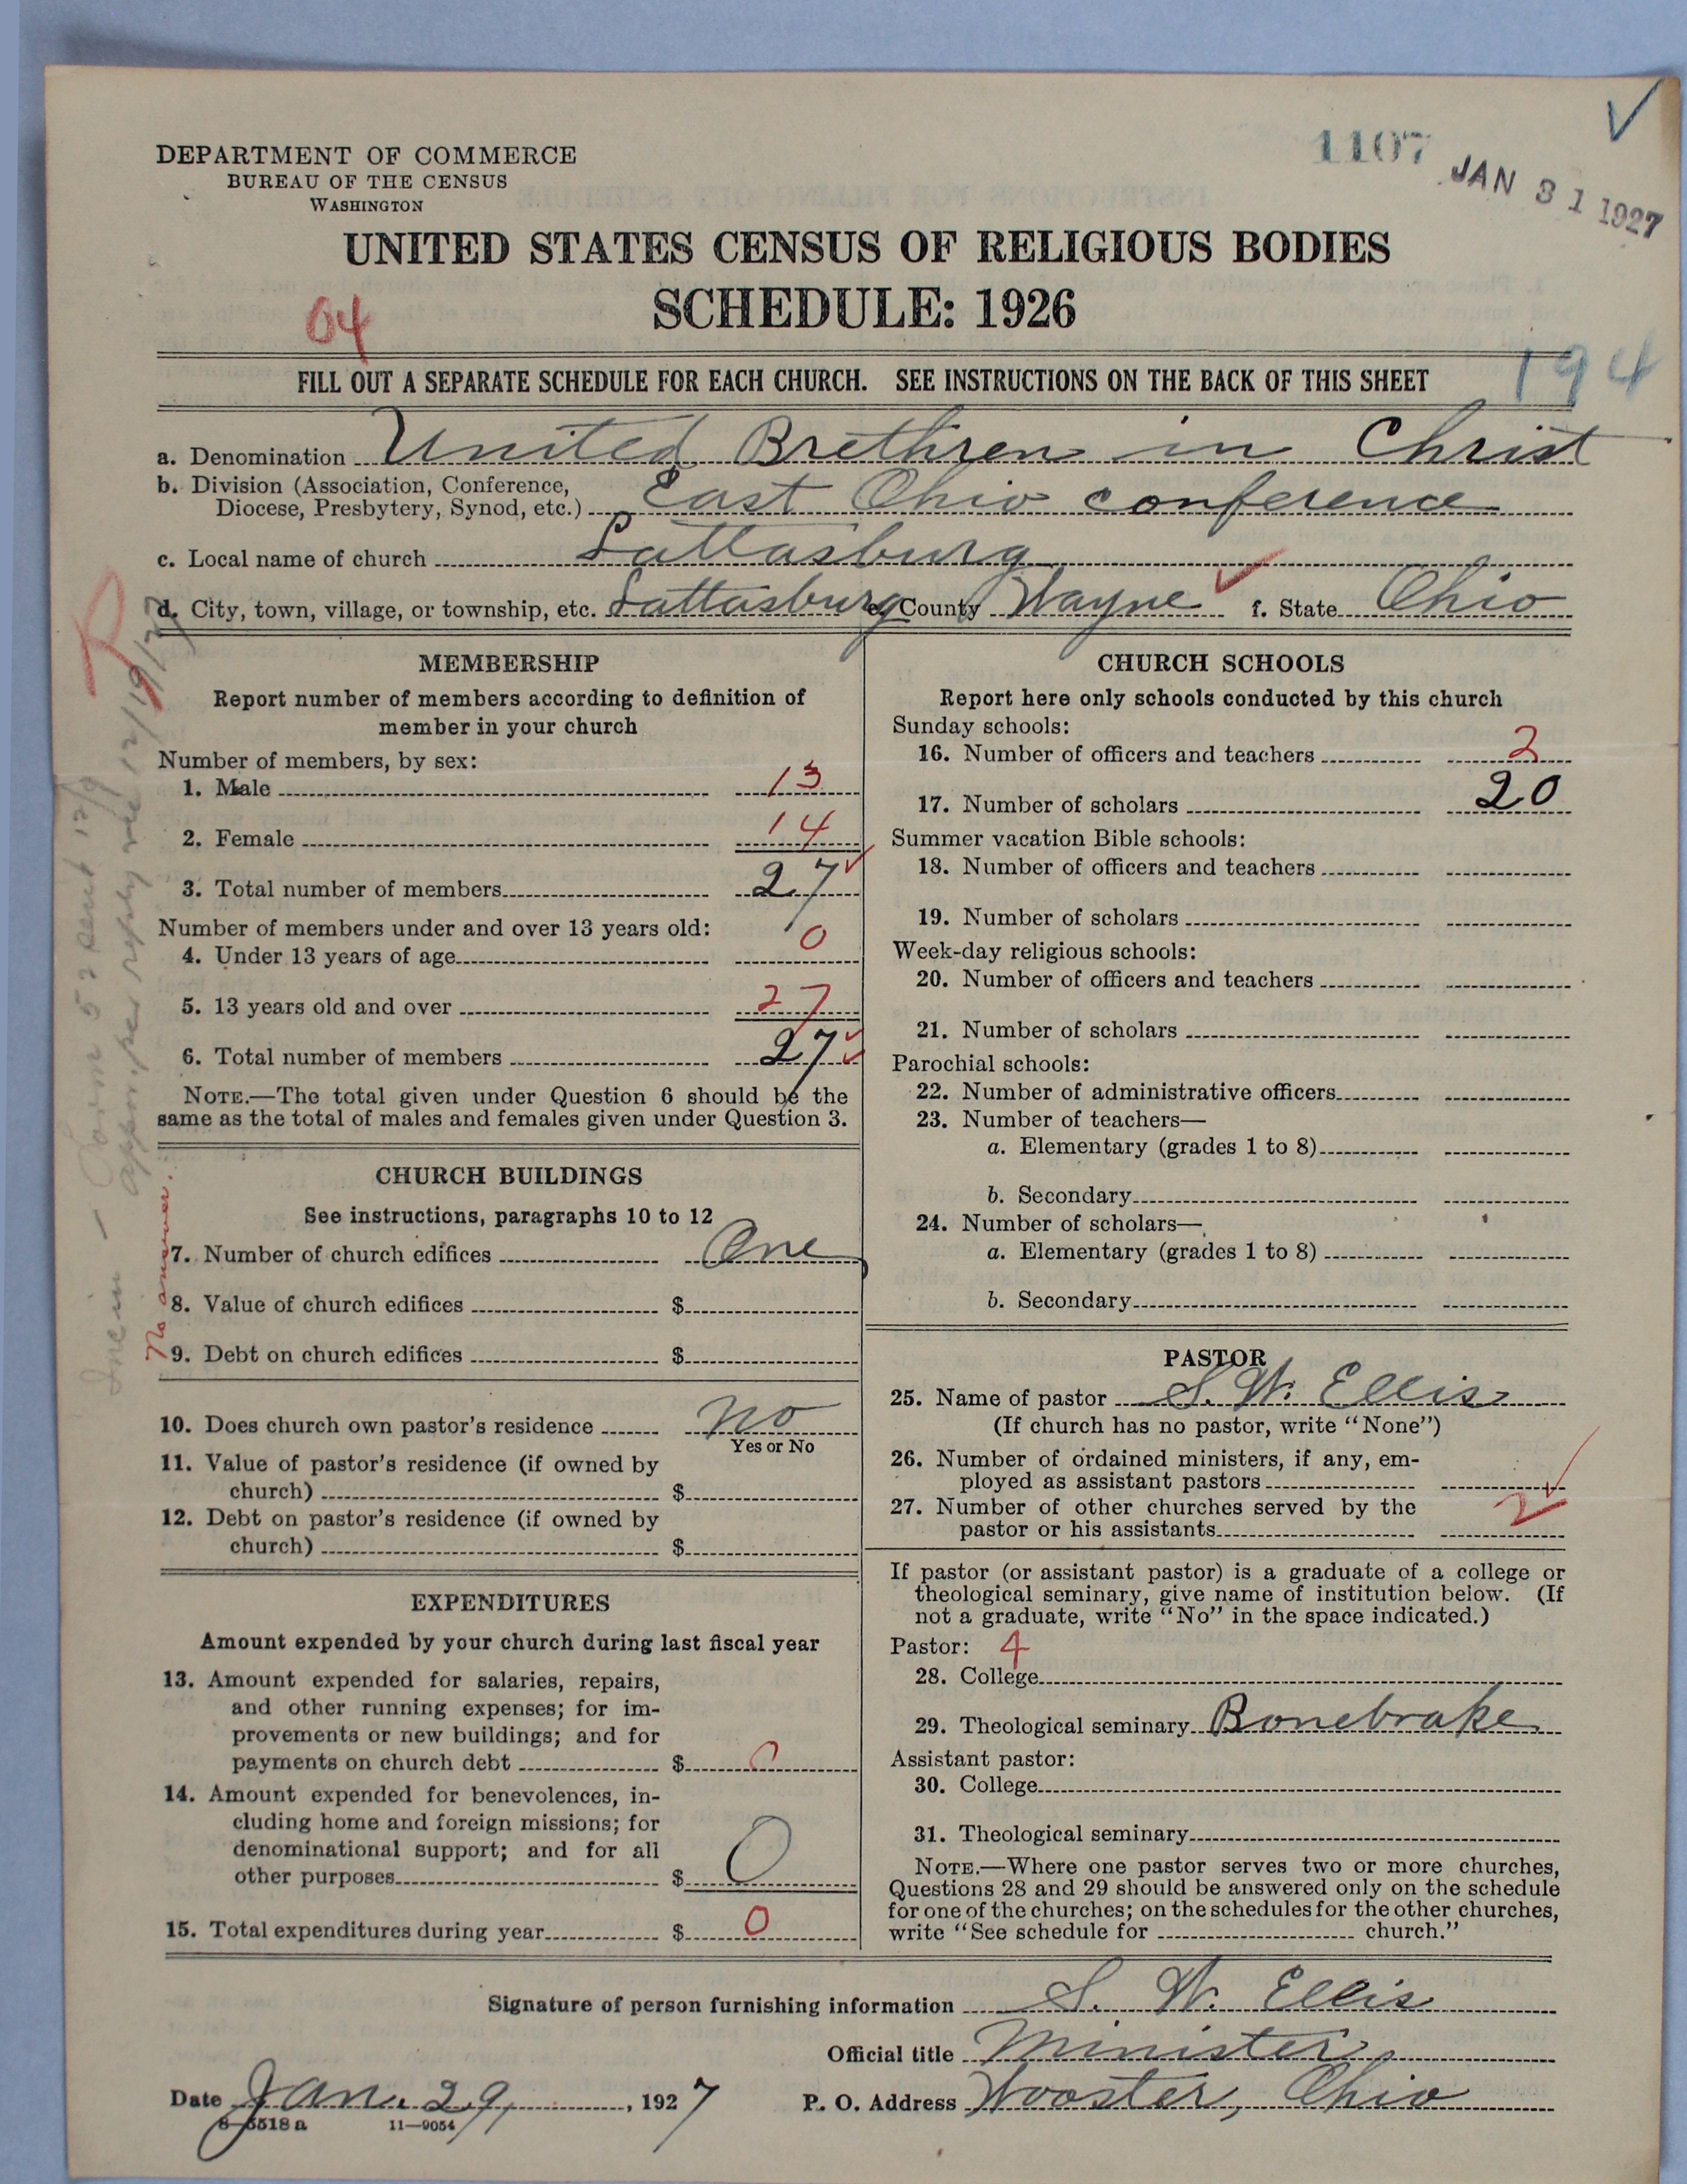 1107
JAN 31 1927
DEPARTMENT OF COMMERCE
BUREAU OF THE CENSUS
WASHINGTON
UNITED STATES CENSUS OF RELIGIOUS BODIES
SCHEDULE: 1926
04
194
FILL OUT A SEPARATE SCHEDULE FOR EACH CHURCH. SEE INSTRUCTIONS ON THE BACK OF THIS SHEET
a. Denomination United Brethren in Christ
b. Division (Association, Conference,
Diocese, Presbytery, Synod, etc.) East Ohio conference
c. Local name of church Lattasburg
d. City, town, village, or township, etc. Lattasburg e. County Wayne f. State Ohio
R
MEMBERSHIP
Report number of members according to definition of
member in your church
Number of members, by sex:
1. Male 13
2. Female 14
3. Total number of members 27
Number of members under and over 13 years old:
4. Under 13 years of age 0
5. 13 years old and over 27
6. Total number of members 27
NOTE.—The total given under Question 6 should be the
same as the total of males and females given under Question 3.
CHURCH BUILDINGS
See instructions, paragraphs 10 to 12
7. Number of church edifices One
8. Value of church edifices $
9. Debt on church edifices $
No answer.
10. Does church own pastor's residence no
Yes or No
11. Value of pastor's residence (if owned by
church) $
12. Debt on pastor's residence (if owned by
church) $
EXPENDITURES
Amount expended by your church during last fiscal year
13. Amount expended for salaries, repairs,
and other running expenses; for im-
provements or new buildings; and for
payments on church debt $ 0
14. Amount expended for benevolences, in-
cluding home and foreign missions; for
denominational support; and for all
other purposes $ 0
15. Total expenditures during year $ 0
CHURCH SCHOOLS
Report here only schools conducted by this church
Sunday schools:
16. Number of officers and teachers 2
17. Number of scholars 20
Summer vacation Bible schools:
18. Number of officers and teachers
19. Number of scholars
Week-day religious schools:
20. Number of officers and teachers
21. Number of scholars
Parochial schools:
22. Number of administrative officers
23. Number of teachers—
a. Elementary (grades 1 to 8)
b. Secondary
24. Number of scholars—
a. Elementary (grades 1 to 8)
b. Secondary
PASTOR
25. Name of pastor S. W. Ellis
(If church has no pastor, write "None")
26. Number of ordained ministers, if any, em-
ployed as assistant pastors
27. Number of other churches served by the
pastor or his assistants 2
If pastor (or assistant pastor) is a graduate of a college or
theological seminary, give name of institution below. (If
not a graduate, write "No" in the space indicated.)
Pastor: 4
28. College
29. Theological seminary Bonebrake
Assistant pastor:
30. College
31. Theological seminary
NOTE.—Where one pastor serves two or more churches,
Questions 28 and 29 should be answered only on the schedule
for one of the churches; on the schedules for the other churches,
write "See schedule for church."
Signature of person furnishing information S. W. Ellis
Official title Minister
Date Jan. 29, 1927 P. O. Address Wooster, Ohio
8—5518 a 11—9054